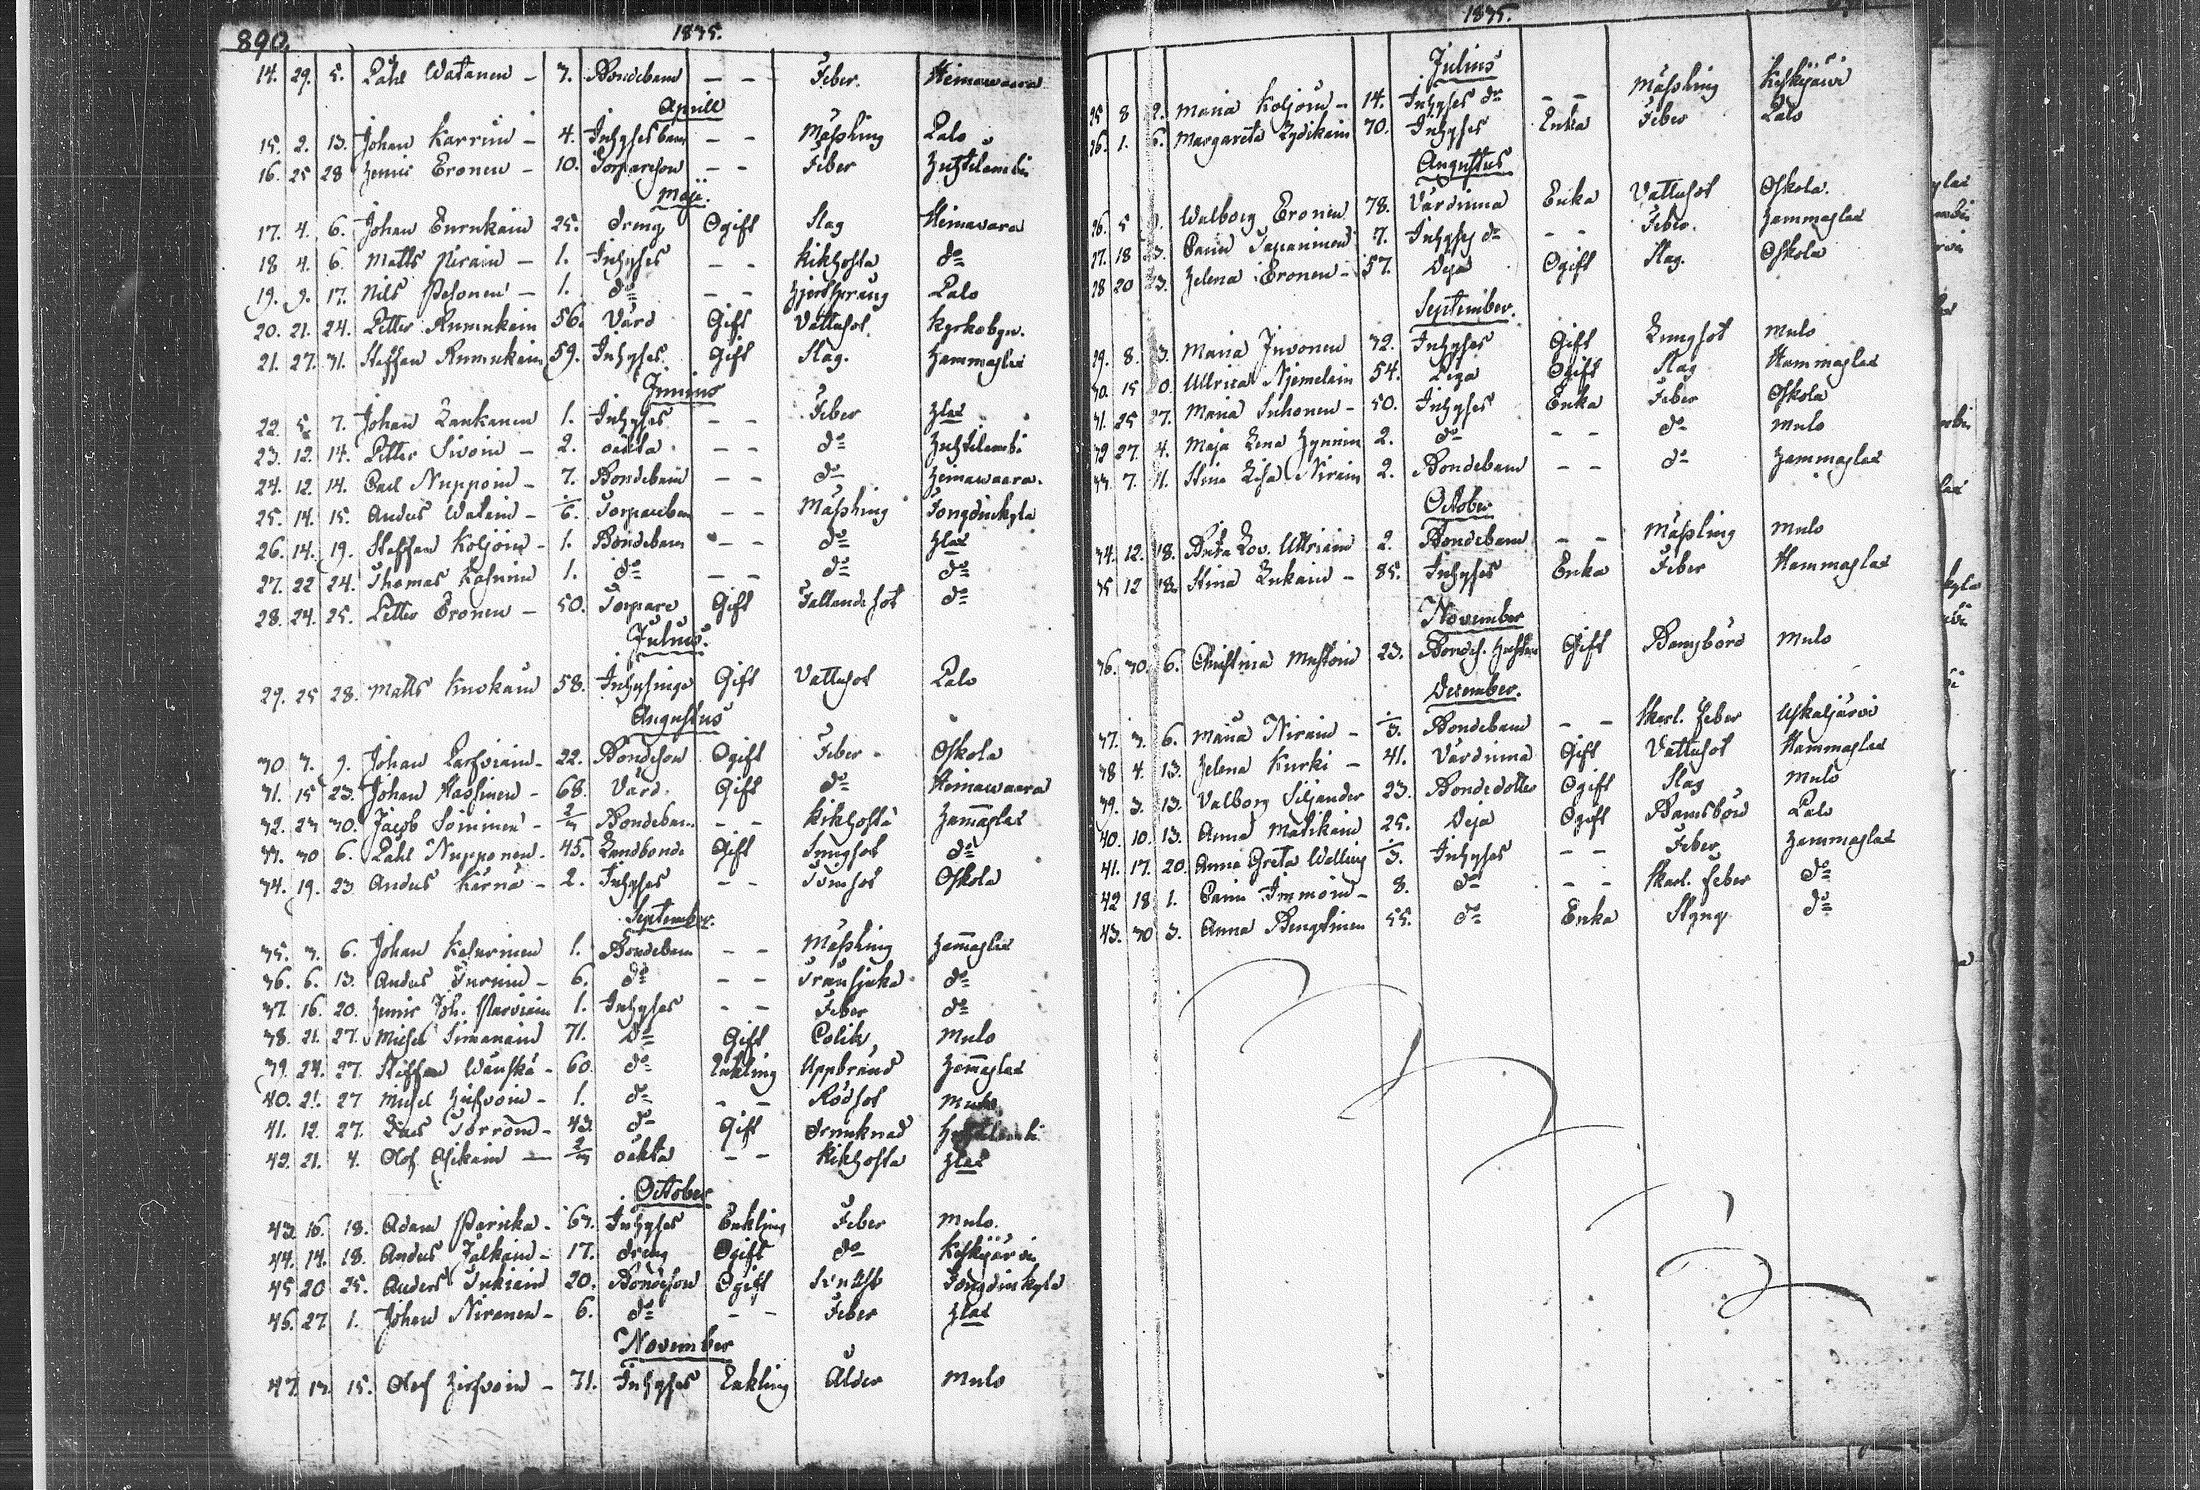 890.
1835.
14. 29. 5. Påhl Watanen - 3. Bondebarn - - Feber. Heinawaara
Aprill
15. 2. 13. Johan Karvin - 4. Inhysesbarn - - Mässling Palo
16. 25 28 Henric Eronen - 10. Torpareson - - Feber
Maji.
17. 4. 6. Johan Turukain 25. Dreng Ogift Slag Heinavara
18 4. 6. Matts Nirain - 1. Inhyses - - Kikhosta do
19. 9. 17. Nils Pesonen - 1. do - - Palo
20. 21. 24. Petter 56. Värd Gift Vattusot. Kyrkobyn.
21. 27. 31. Staffan 59. Inhyses Gift Slag. Hammaslax
Junius
22. 5. 7. Johan Laukanen 1. Inhyses - - Feber Hlax
23. 12. 14. Petter Sivoin - 2. oäkta - - do
24. 12. 14. Carl Nuppoin - 7. Bondebarn - - do Heinawaara.
25. 14. 15. Anders Watain - Torparebarn - - Mässling
26. 14. 19. Staffan Koljoin - 1. Bondebarn - - do Hlax
27. 22 24. Thomas 1. do - - do do
28. 24. 25. Petter Eronen - 50. Torpare Gift Fallandesot do
Julius.
29. 25 28. Matts Kuokain 58. Inhysinge Gift Vattusot Palo
Augustus
30 7. 9. Johan Parfviain - 22. Bondeson Ogift Feber - Oskola
31. 15 23. Johan Hassinen - 68. Värd Gift do Heinawaara
32. 23 30. Jacob Sominen - 2/3 Bondebarn - - Kikhosta Hammaslax
33. 30 6. Påhl Nupponen - 45. Landbonde Gift Lungsot do
34. 19. 23 Anders Kärnä - 2. Inhyses - - Oskola
September.
35. 3. 6. Johan 1. Bondebarn - - Mässling Hammaslax
36. 6. 13. Anders Turuin - 6. do - - do
37. 16. 20. Henric Joh. Parviain 1. Inhyses - - Feber do
38. 21. 27. Michel Simanain 71. do Gift Colik Mulo
39. 24. 27. Staffan Wänskä - 60. do Enkling Uppbränd Hammaslax
40. 21. 27 Michel Hirfvoin - 1. do - - Rödsot Mulo
41. 12. 27. 43. do Gift Drunknad
42. 21. 4. Olof Asikain - 2/3 oäkta - - Kikhosta Hlax
October
43. 16. 18. Adam - 63. Inhyses Enkling Feber Mulo.
44. 14. 18. Anders Jalkain - 17. Dreng Ogift do Keskijärvi
45 20 25. Anders Tukiain 20. Bondeson Ogift
46. 27. 1. Johan Niranen - 6. do - - Feber Hlax
November
47 13. 15. Olof Hirfvoin - 71. Inhyses Enkling Ålder Mulo
1835.
Julius
25 8 2. Maria Koljoin - 14. Inhyses dr - - Mässling Keskijärvi
26. 1. 6. Margareta Lydikain 70. Inhyses Enka Feber Palo
Augustus
26. 5 9. Walborg Eronen 78. Värdinna Enka Vattusot Oskola.
27. 18 23. Carin Tapaninen 7. Inhyses dr - - Feber. Hammaslax
28 20 23. Helena Eronen - 57. Deja Ogift Slag. Oskola
September.
29. 8. 13. Maria Jivonen 32. Inhyses Gift Lungsot Mulo
30. 15 20. Ullrica Njemelain 54. Piga Ogift Slag Hammaslax
31. 25 27. Maria Suhonen - 50. Inhyses Enka Feber Oskola
32 27. 4. Maja Lena Hynnin 2. do - - do Mulo
33 7. 11. Stina Lisa Nirain 2. Bondebarn - - do Hammaslax
October
34. 12. 18. Brita Lov. Uttriain 2. Bondebarn - - Mässling Mulo
35 12 18. Stina Lukain - 85. Inhyses Enka Feber Hammaslax
November
36. 30. 6. Christina Mustoin 23. Bondes. hustru Gift Barnsbörd Mulo
December.
37. 3. 6. Maria Nirain - Bondebarn - - Skarl. feber Uskaljärvi
38 4. 13. Helena Kurki - 41. Värdinna Gift Vattusot Hammaslax
39. 3. 13. Valborg Siljander 23. Bondedotter Ogift Slag Mulo
40. 10. 13. Anna Matikain 25. Deja Ogift Barnsbörd Palo
41. 17. 20. Anna Greta Welling Inhyses - - Feber Hammaslax
42 18 1. Carin Immoin - 8. do - - Skarl. feber do
43. 30 3. Anna Bengtinen 55. do Enka Styng. do